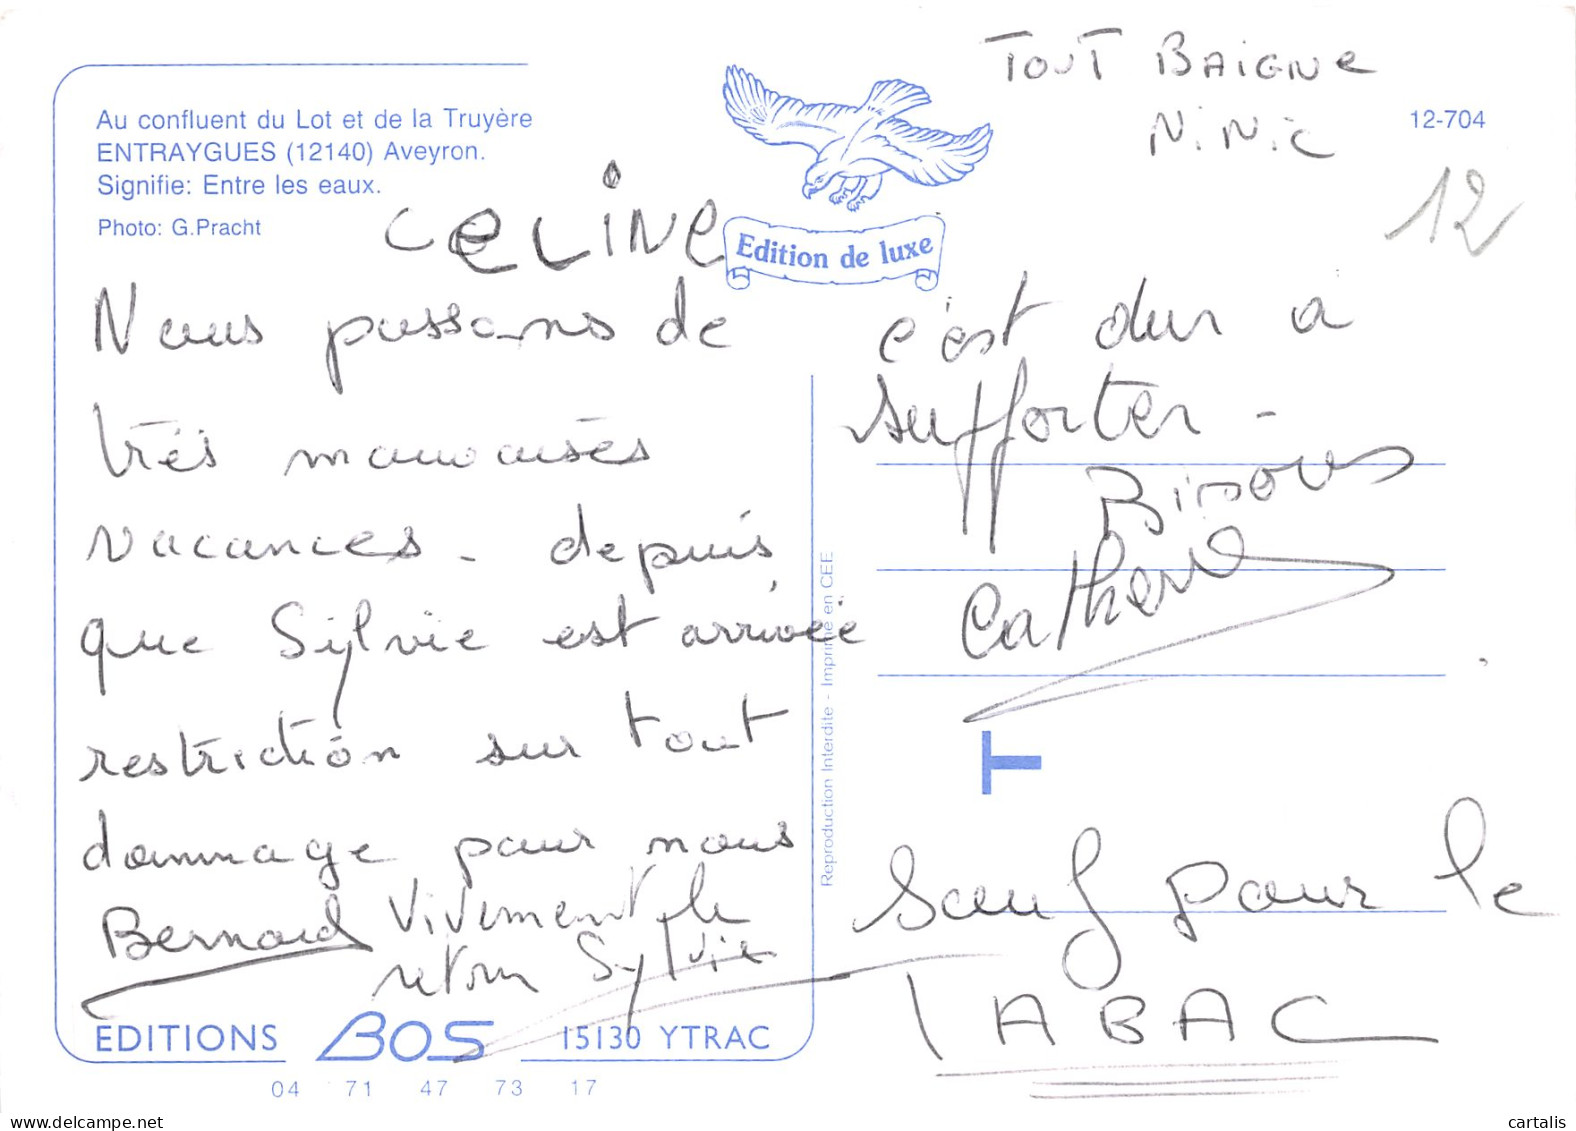 TOUT BAIGNE
NiNiC
12-704
12
Au confluent du Lot et de la Truyère
ENTRAYGUES (12140) Aveyron.
Signifie: Entre les eaux.
Photo: G.Pracht
CELINE
Edition de luxe
Nous passons de
très mauvaises
vacances - depuis
que Sylvie est arrivée
restriction sur tout
dommage pour nous
Bernard
Vivement le
retour Sylvie
c'est dur a
supporter -
Bisous
Catherine
T
Sauf pour le
TABAC
Reproduction Interdite - Imprimé en CEE
EDITIONS BOS 15130 YTRAC
04 71 47 73 17
www.delcampe.net
cartalis